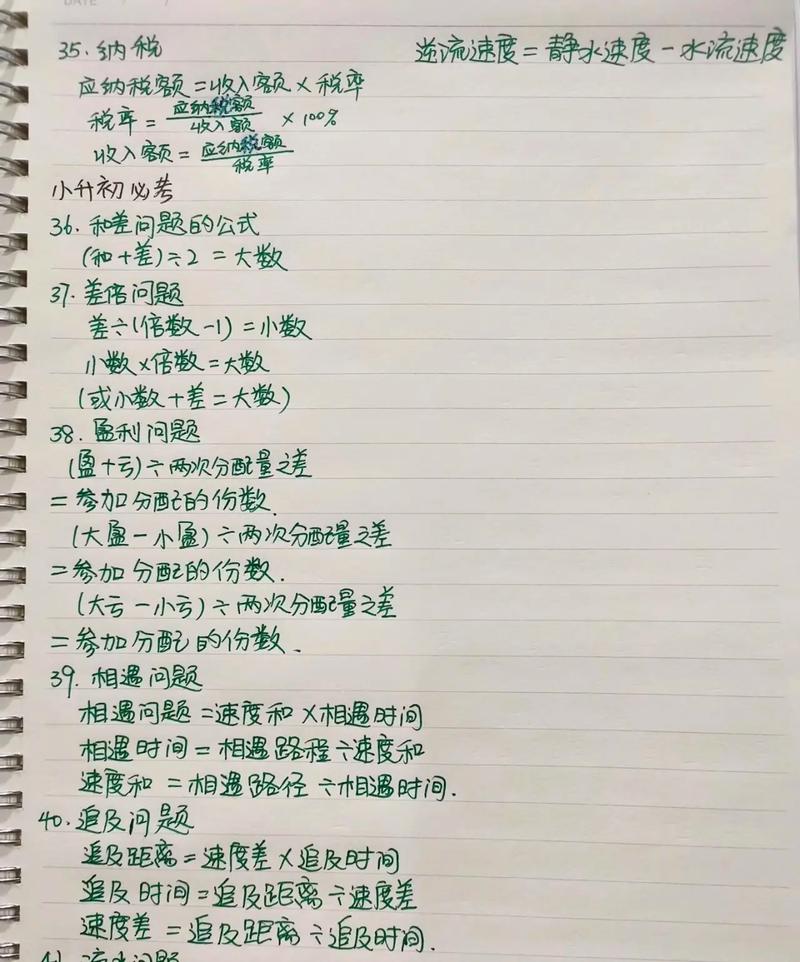 DATE
35. 纳税
逆流速度=静水速度-水流速度
应纳税额=收入额×税率
税率=应纳税额/收入额×100%
收入额=应纳税额/税率
小升初必考
36. 和差问题的公式
(和+差)÷2=大数
37. 差倍问题
差÷(倍数-1)=小数
小数×倍数=大数
(或小数+差=大数)
38. 盈利问题
(盈+亏)÷两次分配量之差
=参加分配的份数.
(大盈-小盈)÷两次分配量之差
=参加分配的份数.
(大亏-小亏)÷两次分配量之差
=参加分配的份数.
39. 相遇问题
相遇问题=速度和×相遇时间
相遇时间=相遇路程÷速度和
速度和=相遇路径÷相遇时间.
40. 追及问题
追及距离=速度差×追及时间
追及时间=追及距离÷速度差
速度差=追及距离÷追及时间.
41. 流水问题